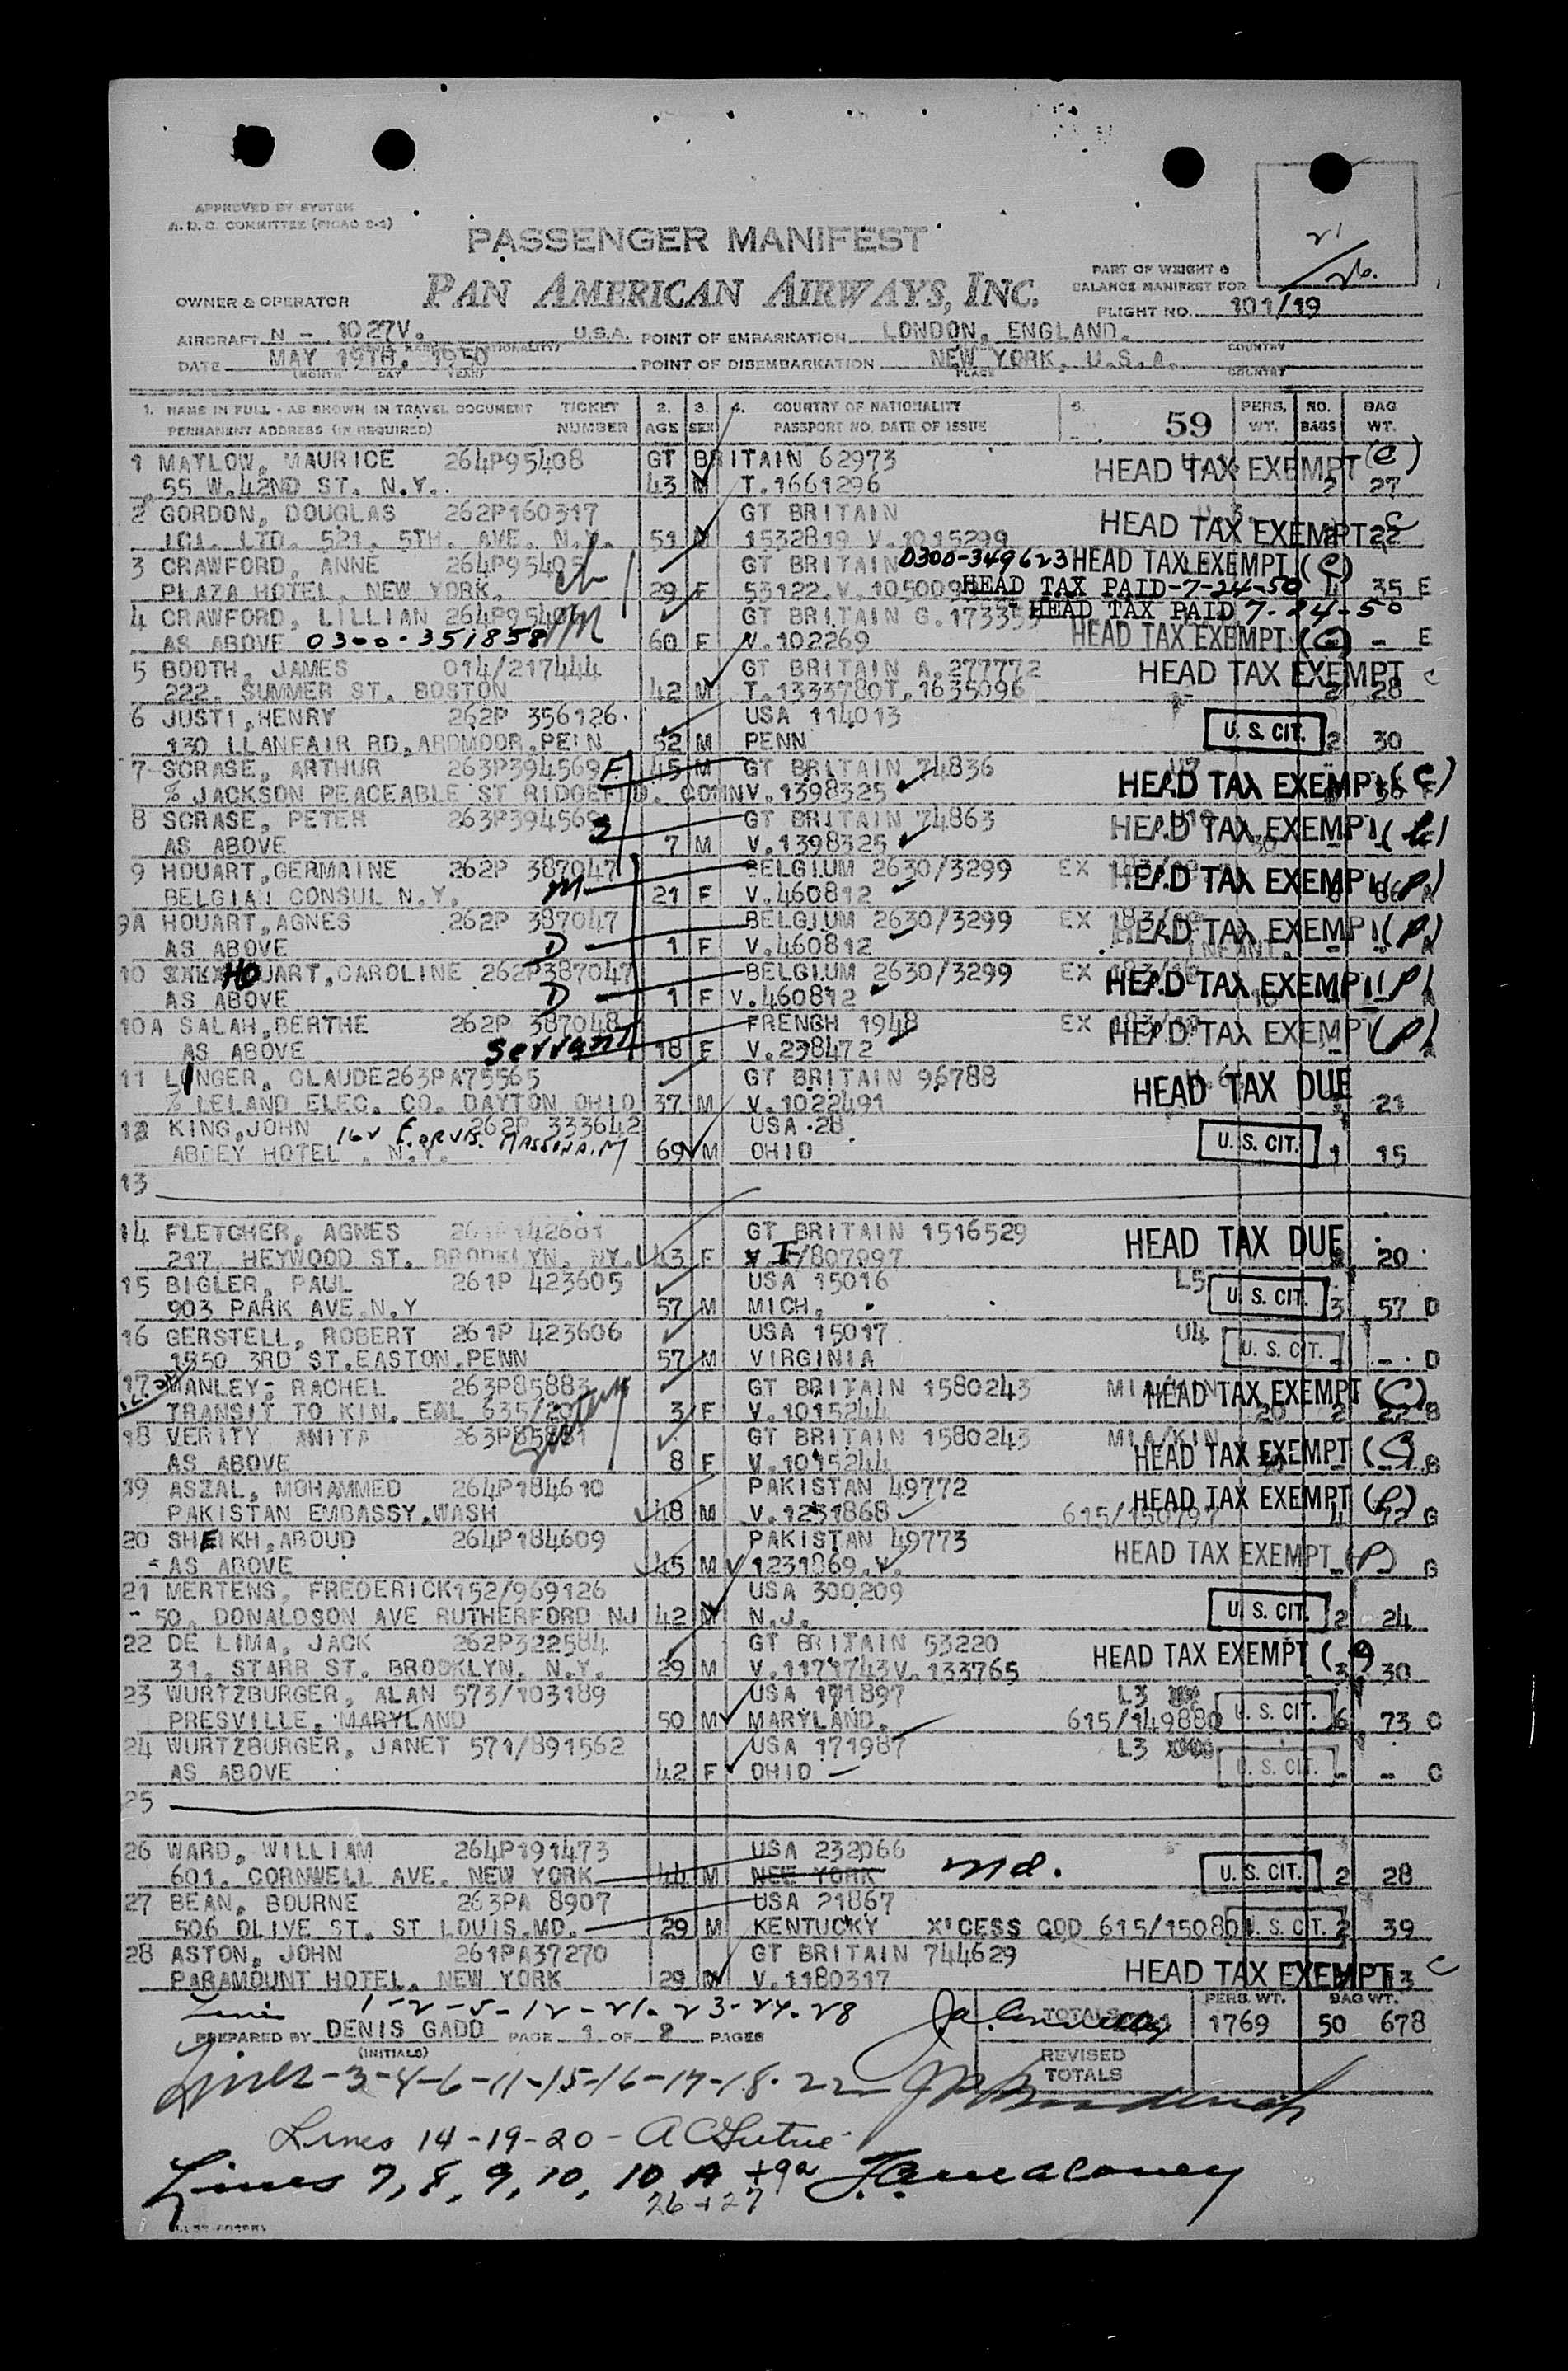 APPROVED BY SYSTEM
A.D.C. COMMITTEE (PICAO 2-4)
PASSENGER MANIFEST
21/26.
PART OF WEIGHT &
BALANCE MANIFEST FOR
PAN AMERICAN AIRWAYS, INC.
OWNER & OPERATOR
FLIGHT NO. 101/19
AIRCRAFT N - 1027V. U.S.A. POINT OF EMBARKATION LONDON, ENGLAND.
DATE MAY 19TH. 1950 POINT OF DISEMBARKATION NEW YORK. U.S.A.
(MONTH DAY YEAR) PLACE COUNTRY
1. NAME IN FULL - AS SHOWN IN TRAVEL DOCUMENT TICKET 2. 3. 4. COUNTRY OF NATIONALITY 5. 59 PERS. NO. BAG
PERMANENT ADDRESS (IF REQUIRED) NUMBER AGE SEX PASSPORT NO. DATE OF ISSUE WT. BAGS WT.
1 MATLOW, MAURICE 264P95408 GT BRITAIN 62973 HEAD TAX EXEMPT (C)
55 W.42ND ST. N.Y.. 43 M T.1661296 2 27
2 GORDON, DOUGLAS 262P160317 GT BRITAIN HEAD TAX EXEMPT C
ICI. LTD. 521. 5TH. AVE. N.Y. 51 M 1532819 V.1015299 22
3 CRAWFORD, ANNE 264P95405 GT BRITAIN 0300-349623 HEAD TAX EXEMPT (C)
PLAZA HOTEL, NEW YORK. 29 F 53122.V. HEAD TAX PAID-7-24-50 4 35 E
4 CRAWFORD, LILLIAN M GT BRITAIN HEAD TAX PAID 7-24-50
AS ABOVE 0300-351858 60 F V.102269 HEAD TAX EXEMPT (C) - E
5 BOOTH, JAMES 014/217444 GT BRITAIN A.277772 HEAD TAX EXEMPT C
222. SUMMER ST. BOSTON 42 M T.1333780T.1635096 2 28
6 JUSTI,HENRY 262P 356126. USA 114013 U. S. CIT.
130 LLANFAIR RD,ARDMOOR,PENN 52 M PENN 2 30
7 SCRASE, ARTHUR 263P394569 F. 45 M GT BRITAIN 74836 HEAD TAX EXEMPT (C)
% JACKSON PEACEABLE ST RIDGEFLD. CONN V.1398325
8 SCRASE, PETER 263P394569 S GT BRITAIN 74863 HEAD TAX EXEMPT
AS ABOVE 7 M V.1398325
9 HOUART,GERMAINE 262P 387047 M BELGIUM 2630/3299 EX HEAD TAX EXEMPT (P)
BELGIAN CONSUL N.Y. 21 F V.460812
9A HOUART,AGNES 262P 387047 BELGIUM 2630/3299 EX HEAD TAX EXEMPT (P)
AS ABOVE D 1 F V.460812 INFANT.
10 HOUART,CAROLINE 262P387047 BELGIUM 2630/3299 EX HEAD TAX EXEMPT (P)
AS ABOVE D 1 F V.460812
10A SALAH,BERTHE 262P 387048 FRENGH 1948 EX HEAD TAX EXEMPT (P)
AS ABOVE Servant 18 F V.238472
11 LINGER, CLAUDE263PA75565 GT BRITAIN 96788 HEAD TAX DUE
% LELAND ELEC. CO. DAYTON OHIO 37 M V.1022491 21
12 KING,JOHN 262P 333642 USA .28. U. S. CIT.
ABBEY HOTEL . N.Y. 16 v E. ORVIS. MASSENA.NY 69 M OHIO 1 15
13
14 FLETCHER, AGNES GT BRITAIN 1516529 HEAD TAX DUE
217 HEYWOOD ST. BROOKLYN. NY. 43 F V.I/807097 20
15 BIGLER, PAUL 261P 423605 USA 15016 L5 U. S. CIT.
903 PARK AVE.N.Y 57 M MICH. 3 57 D
16 GERSTELL, ROBERT 261P 423606 USA 15017 U4 U. S. CIT.
1850 3RD ST.EASTON.PENN 57 M VIRGINIA - - D
17 MANLEY, RACHEL 263P85883 GT BRITAIN 1580243 HEAD TAX EXEMPT (C)
TRANSIT TO KIN. EAL 3 F V.1015244 2 22 B
18 VERITY ANITA GT BRITAIN 1580243 MIA/KIN HEAD TAX EXEMPT (C)
AS ABOVE 8 F V.1015244 B
19 ASZAL, MOHAMMED 264P184610 PAKISTAN 49772 HEAD TAX EXEMPT (P)
PAKISTAN EMBASSY.WASH 48 M V.1231868 615/150797 4 72 G
20 SHEIKH,ABOUD 264P184609 PAKISTAN 49773 HEAD TAX EXEMPT (P)
AS ABOVE 45 M 1231869.V. G
21 MERTENS, FREDERICK152/969126 USA 300209 U. S. CIT.
50. DONALDSON AVE RUTHERFORD NJ 42 M N.J. 2 24
22 DE LIMA, JACK 262P322584 GT BRITAIN 53220 HEAD TAX EXEMPT
31. STARR ST. BROOKLYN. N.Y. 29 M V.1171743V.133765 3 30
23 WURTZBURGER, ALAN 573/103189 USA 171897 L3 U. S. CIT.
PRESVILLE, MARYLAND 50 M MARYLAND. 615/149880 6 73 C
24 WURTZBURGER, JANET 571/891562 USA 171987 L3 U. S. CIT.
AS ABOVE 42 F OHIO - - C
25
26 WARD, WILLIAM 264P191473 USA 232066
601. CORNWELL AVE. NEW YORK 44 M NEE YORK md. U. S. CIT. 2 28
27 BEAN, BOURNE 263PA 8907 USA 21867
506 OLIVE ST. ST LOUIS.MO. 29 M KENTUCKY X'CESS COD U. S. CIT. 2 39
28 ASTON, JOHN 261PA37270 GT BRITAIN 744629 HEAD TAX EXEMPT C
PARAMOUNT HOTEL, NEW YORK 29 M V.1180317
1-2-5-12-21-23-24-28 TOTALS PERS. WT. BAG WT.
PREPARED BY DENIS GADD PAGE 1 OF 2 PAGES 1769 50 678
(INITIALS) REVISED TOTALS
Lines-3-4-6-11-15-16-17-18-22
Lines 14-19-20-
Lines 7, 8, 9, 10, 10 A +9a
26+27